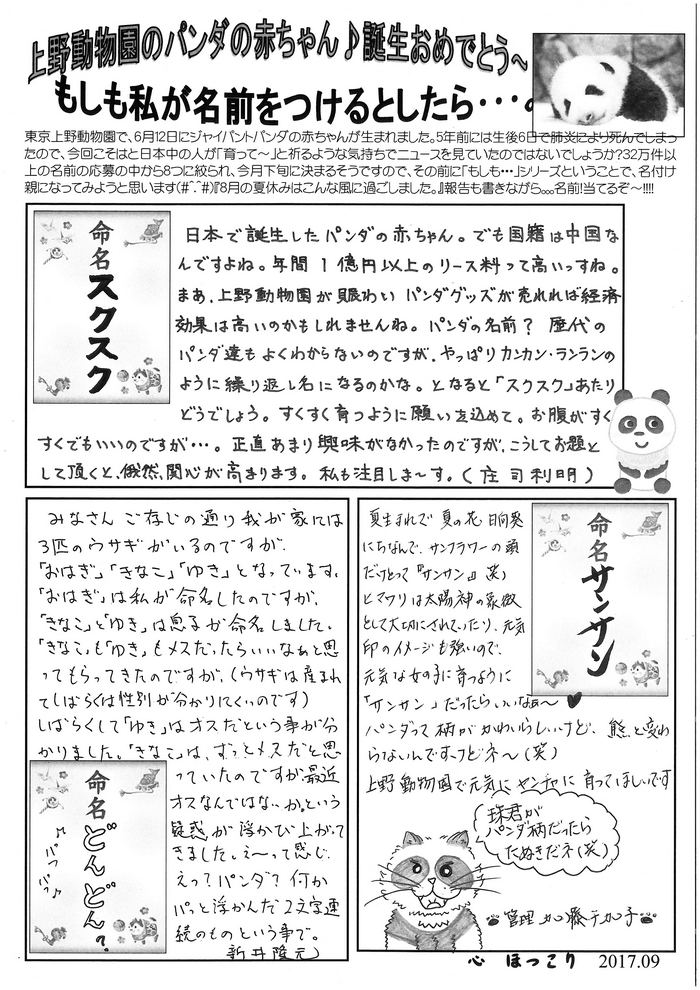 上野動物園のパンダの赤ちゃん♪誕生おめでとう～
もしも私が名前をつけるとしたら・・・。
東京上野動物園で、6月12日にジャイパントパンダの赤ちゃんが生まれました。5年前には生後6日で肺炎により死んでしまっ
たので、今回こそはと日本中の人が「育って～」と祈るような気持ちでニュースを見ていたのではないでしょうか?32万件以
上の名前の応募の中から8つに絞られ、今月下旬に決まるそうですので、その前に「もしも・・・」シリーズということで、名付け
親になってみようと思います(#^.^#)『8月の夏休みはこんな風に過ごしました。』報告も書きながら。。。名前!当てるぞ～!!!!
命名
スクスク
日本で誕生したパンダの赤ちゃん。でも国籍は中国な
んですよね。年間1億円以上のリース料って高いっすね。
まあ、上野動物園が賑わいパンダグッズが売れれば経済
効果は高いのかもしれませんね。パンダの名前? 歴代の
パンダ達もよくわからないのですが、やっぱりカンカン・ランランの
ように繰り返し名になるのかな。となると「スクスク」あたり
どうでしょう。すくすく育つように願いを込めて。お腹がすく
すくでもいいのですが・・・。正直あまり興味がなかったのですが、こうしてお題と
して頂くと、俄然、関心が高まります。私も注目しま～す。(庄司利明)
みなさんご存じの通り我が家には
3匹のウサギがいるのですが、
「おはぎ」「きなこ」「ゆき」となっています。
「おはぎ」は私が命名したのですが、
「きなこ」と「ゆき」は息子が命名しました。
「きなこ」も「ゆき」もメスだったらいいなぁと思
ってもらってきたのですが、(ウサギは産まれ
てしばらくは性別が分かりにくいのです)
しばらくして「ゆき」はオスだという事が分
かりました。「きなこ」は、ずっとメスだと思
っていたのですが最近
オスなんではないか?という
疑惑が浮かび上がって
きました。え～って感じ。
えっ?パンダ?何か
パッと浮かんだ2文字連
続のものという事で。
新井隆元
命名
どんどん?
♪パフパフ♪
夏生まれで夏の花 日向葵
にちなんで、サンフラワーの頭
だけとって『サンサン』笑)
ヒマワリは太陽神の象徴
として大切にされていたり、元気
印のイメージも強いので、
元気な女の子に育つように
「サンサン」だったらいいなぁ～
パンダって柄がかわいらしいけど、熊と変わ
らないんですけどネ～(笑)
上野動物園で元気にヤンチャに育ってほしいです
命名
サンサン
珠君が
パンダ柄だったら
たぬきだネ(笑)
管理
心 ほっこり 2017.09